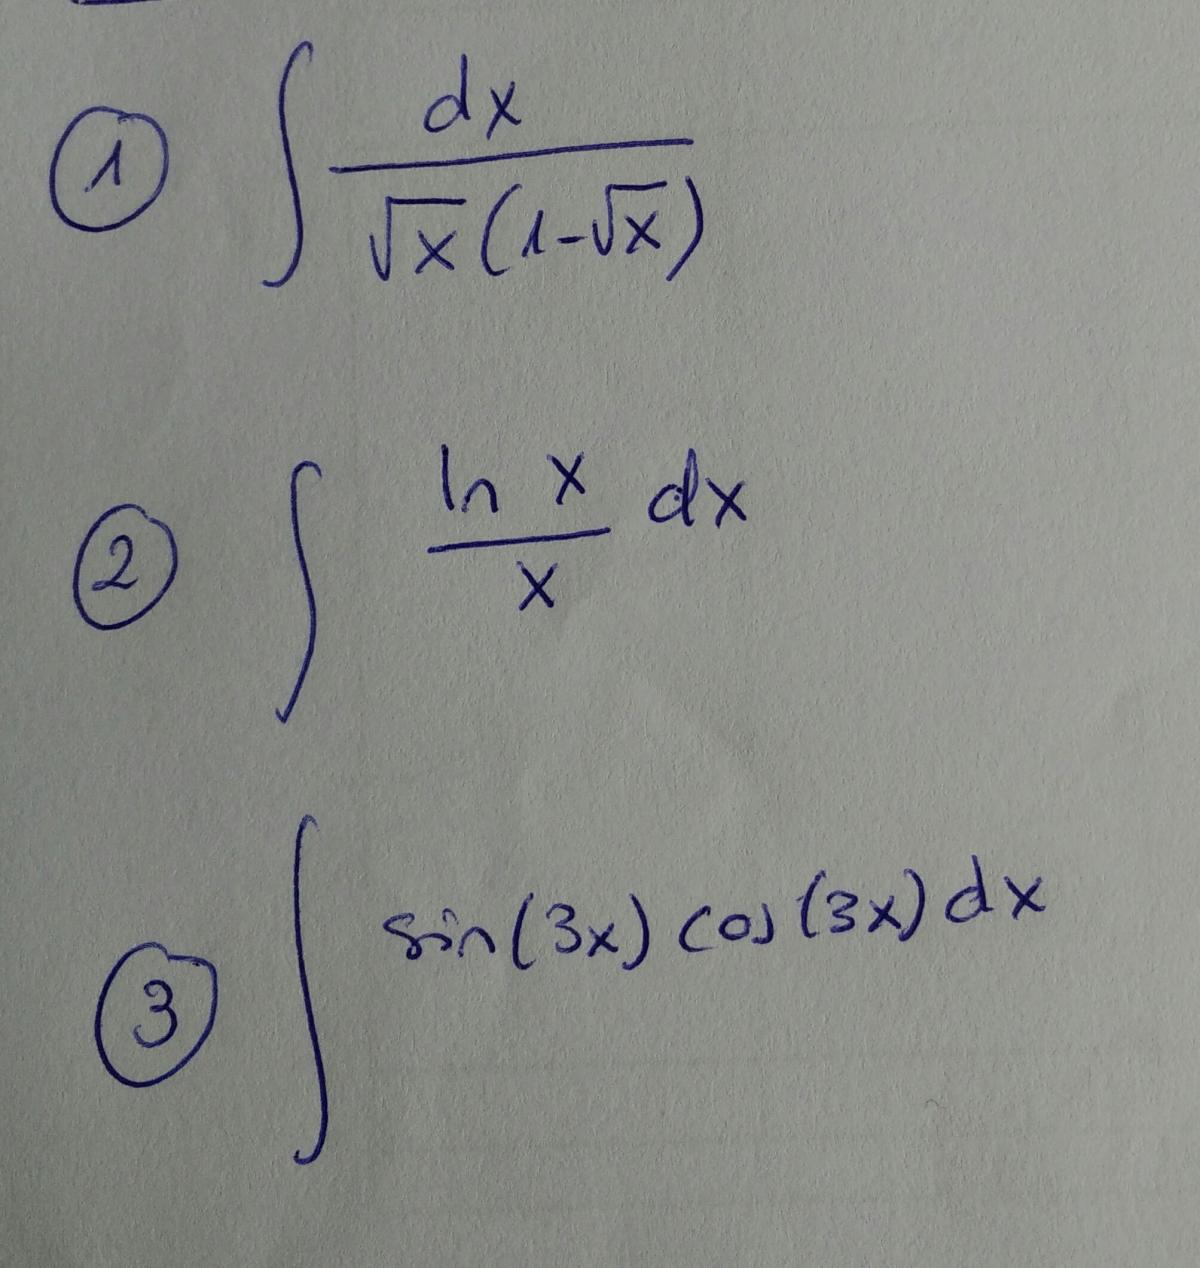 ① ∫ dx / √x (1-√x)
② ∫ ln x / x dx
③ ∫ sin(3x) cos(3x) dx